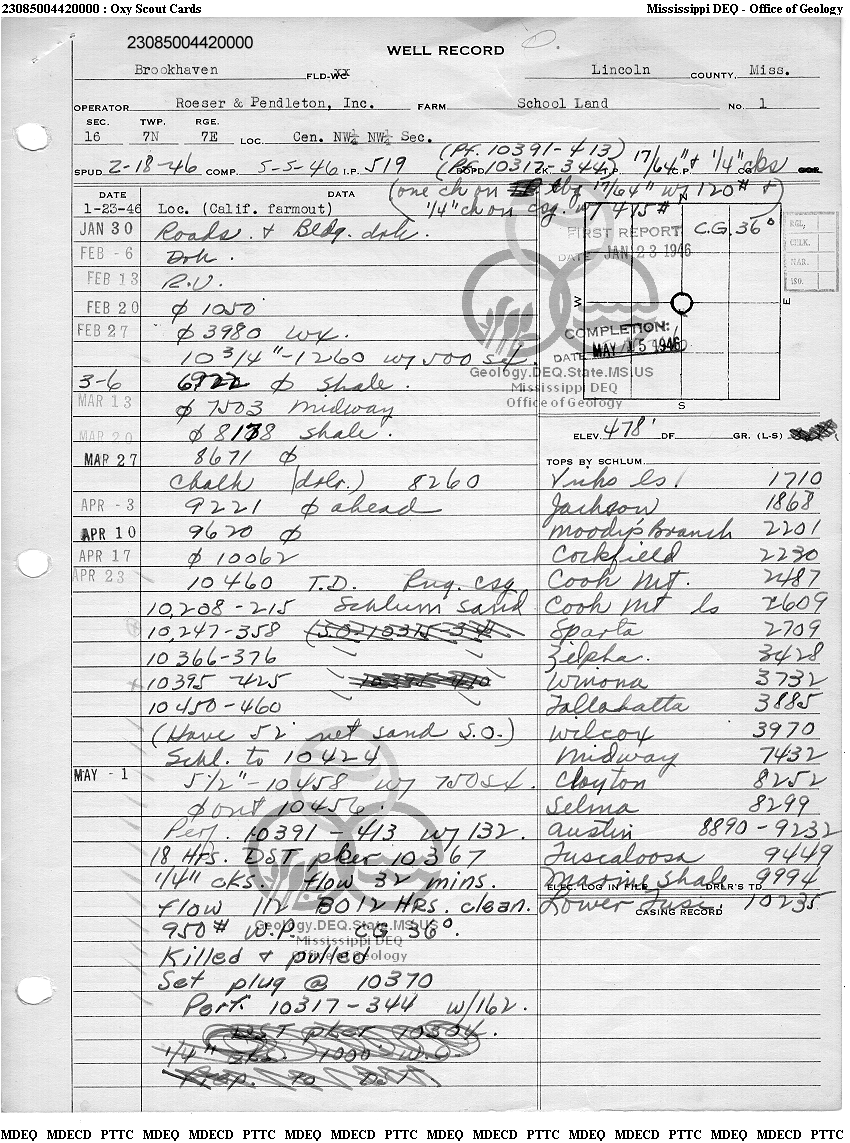 23085004420000 : Oxy Scout Cards
Mississippi DEQ - Office of Geology
23085004420000
WELL RECORD
Brookhaven FLD-WC xx Lincoln COUNTY, Miss.
OPERATOR Roeser & Pendleton, Inc. FARM School Land No. 1
SEC. TWP. RGE.
16 7N 7E LOC. Cen. NW¼ NW¼ Sec.
(Pf. 10391-413)
SPUD 2-18-46 COMP. 5-5-46 I.P. 519 BOPD (Pf. 10317-344) CK. T.P. 17/64" & 1/4" C.P. cks
DATE DATA (one ch on tbg 17/64" w/ 120# &
1-23-46 Loc. (Calif. farmout) 1/4" ch on csg. w/ 475#)
JAN 30 Roads & Bldg. drk.
FEB - 6 Drk.
FEB 13 R.U.
FEB 20 ϕ 1050
FEB 27 ϕ 3980 wx.
10 3/4"-1260 w/ 500 sx.
3-6 6922 ϕ shale.
MAR 13 ϕ 7503 Midway
MAR 20 ϕ 8178 shale.
MAR 27 8671 ϕ
Chalk (drlr.) 8260
APR - 3 9221 ϕ ahead
APR 10 9620 ϕ
APR 17 ϕ 10062
APR 23
10460 T.D. Rng. csg
10,208-215 Schlum sand
10,247-358
10366-376
10395-425
10450-460
(Have 52' net sand S.O.)
Schl. to 10424
MAY - 1 5 1/2"-10458 w/ 750 sx.
ϕ out 10456.
Perf. 10391-413 w/ 132.
18 Hrs. DST pker 10367
1/4" cks. flow 32 mins.
flow 112 BO 12 HRS. clean.
950# W.P. CG 36°.
Killed & pulled
Set plug @ 10370
Perf. 10317-344 w/162.
DST pker 10304.
1/4" cks. 1000' W.C.
Prep. to DST
FIRST REPORT
DATE JAN 23 1946
C.G. 36°
RGL.
CHLK.
NAR.
ISO.
N
W
E
S
COMPLETION:
DATE MAY 15 1946
Geology.DEQ.State.MS.US
Mississippi DEQ
Office of Geology
ELEV. 478' DF GR. (L-S)
TOPS BY SCHLUM.
Vicks ls. 1710
Jackson 1868
Moodys Branch 2201
Cockfield 2230
Cook Mt. 2487
Cook Mt ls 2609
Sparta 2709
Zilpha. 3428
Winona 3732
Tallahatta 3885
Wilcox 3970
Midway 7432
Clayton 8252
Selma 8299
Austin 8890-9232
Tuscaloosa 9449
Marine Shale 9994
ELEC. LOG IN FILE DRLR'S TD
Lower Tusc. 10235
CASING RECORD
Geology.DEQ.State.MS.US
Mississippi DEQ
Office of Geology
MDEQ MDECD PTTC MDEQ MDECD PTTC MDEQ MDECD PTTC MDEQ MDECD PTTC MDEQ MDECD PTTC MDEQ MDECD PTTC